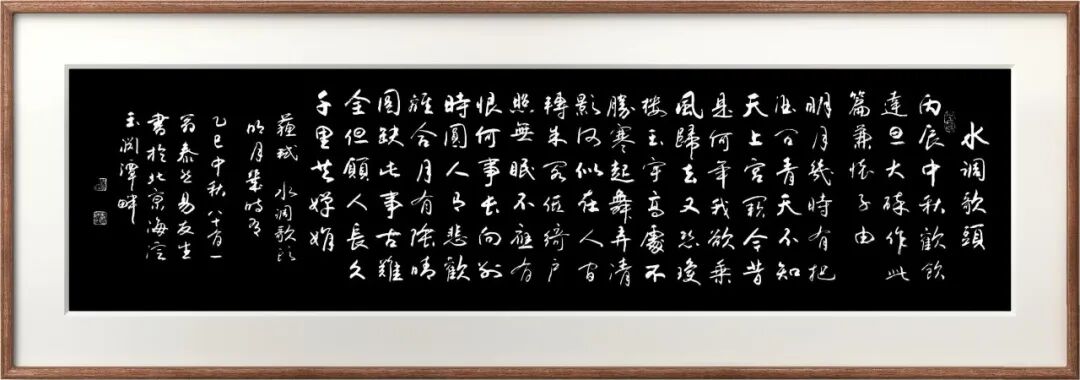 水調歌頭
丙辰中秋歡飲
達旦大醉作此
篇兼懷子由
明月幾時有把
酒问青天不知
天上宫阙今昔
是何年我欲乘
風歸去又恐瓊
樓玉宇高處不
勝寒起舞弄清
影何似在人间
轉朱阁低綺户
照無眠不應有
恨何事长向别
時圓人有悲歡
離合月有陰晴
圆缺此事古難
全但願人長久
千里共嬋娟
蘇軾 水调歌头
明月幾时有
乙巳中秋八十有一
翁泰然易友生
書於北京海淀
玉渊潭畔